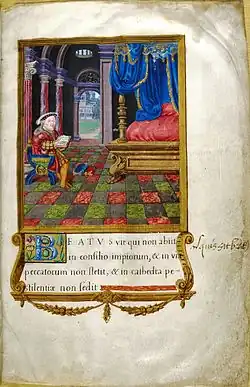 BEATVS vir qui non abiit
in consilio impiorum, & in via
peccatorum non stetit, & in cathedra pe-
stilentiæ non sedit